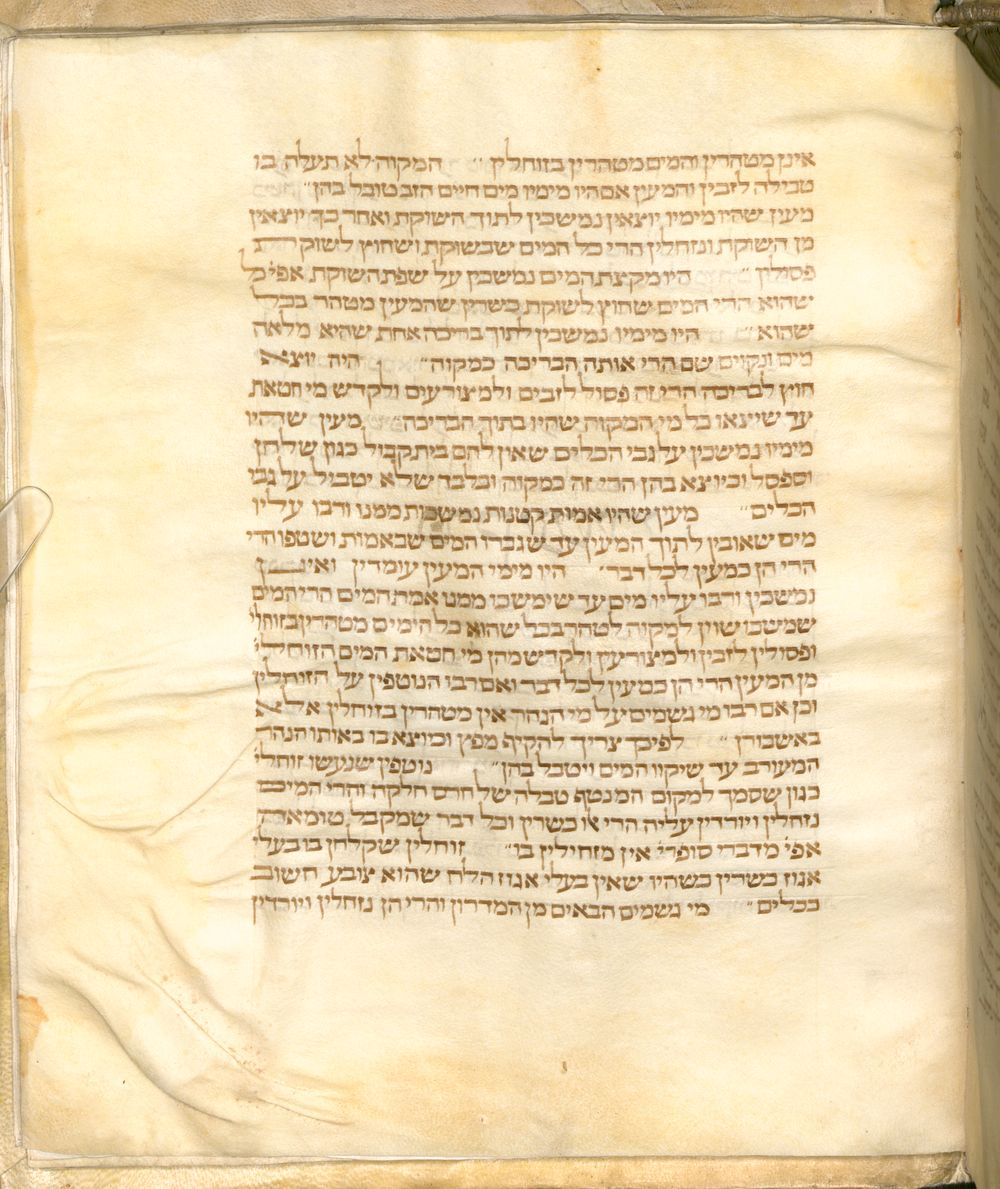 אינן מטהרין והמים מטהרין בזוחלין ״ המקוה לא תעלה בו
טבילה לזבין והמעין אם היו מימיו מים חיים הזב טובל בהן״
מעין שהיו מימיו יוצאין נמשכין לתוך השוקת ואחר כך יוצאין
מן השוקת ונזחלין הרי כל המים שבשוקת ושחוץ לשוקת
פסולין ״ היו מקצת המים נמשכין על שפת השוקת אפי׳ כל
שהוא הרי המים שחוץ לשוקת כשרין שהמעין מטהר בכל
שהוא״ היו מימיו נמשכין לתוך בריכה אחת שהיא מלאה
מים ונקוים שם הרי אותה הבריכה כמקוה״ היה יוצא
חוץ לבריכה הרי זה פסול לזבים ולמצורעים ולקדש מי חטאת
עד שייצאו כל מי המקוה שהיו בתוך הבריכה״ מעין שהיו
מימיו נמשכין על גבי הכלים שאין להם בית קבול כגון שלחן
וספסל וכיוצא בהן הרי זה כמקוה ובלבד שלא יטביל על גבי
הכלים״ מעין שהיו אמות קטנות נמשכות ממנו ורבו עליו
מים שאובין לתוך המעין עד שגברו המים שבאמות ושטפו הרי
הרי הן כמעין לכל דבר׳ היו מימי המעין עומדין ואינן
נמשכין ורבו עליו מים עד שימשכו ממנו אמת המים הרי המים
שמשכו שוין למקוה לטהר בכל שהוא כל הימים מטהרין בזוחלי׳
ופסולין לזבין ולמצורעין ולקדש מהן מי חטאת המים הזוחלי׳
מן המעין הרי הן כמעין לכל דבר ואם רבו הנוטפין על הזוחלין
וכן אם רבו מי גשמים על מי הנהר אין מטהרין בזוחלין אלא
באשבורן ״ לפיכך צריך להקיף מפץ וכיוצא בו באותו הנהר
המעורב עד שיקוו המים ויטבל בהן״ נוטפין שנעשו זוחלי׳
כגון שסמך למקום המנטף טבלה של חרס חלקה והרי המים
נזחלין ויורדין עליה הרי אלו כשרין וכל דבר שמקבל טומאה
אפי׳ מדברי סופרי׳ אין מזחילין בו״ זוחלין שקלחן בו בעלי
אגוז כשרין כשהיו שאין בעלי אגוז הלח שהוא צובע חשוב
בכלים ״ מי גשמים הבאים מן המדרון והרי הן נזחלין ויורדין